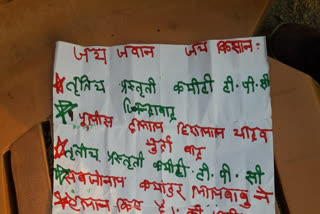 जय जवान जय किसान:
★ तृतीय प्रस्तुती कमीटी टी.पी.सी
जिन्दाबाद
★ पुलिस दलाल हिरालाल यादव
मुर्दा बाद
★ तृतीय प्रस्तुती कमीटी टी.पी.सी
★ सबजोनल कमांडर लालबाबु ने